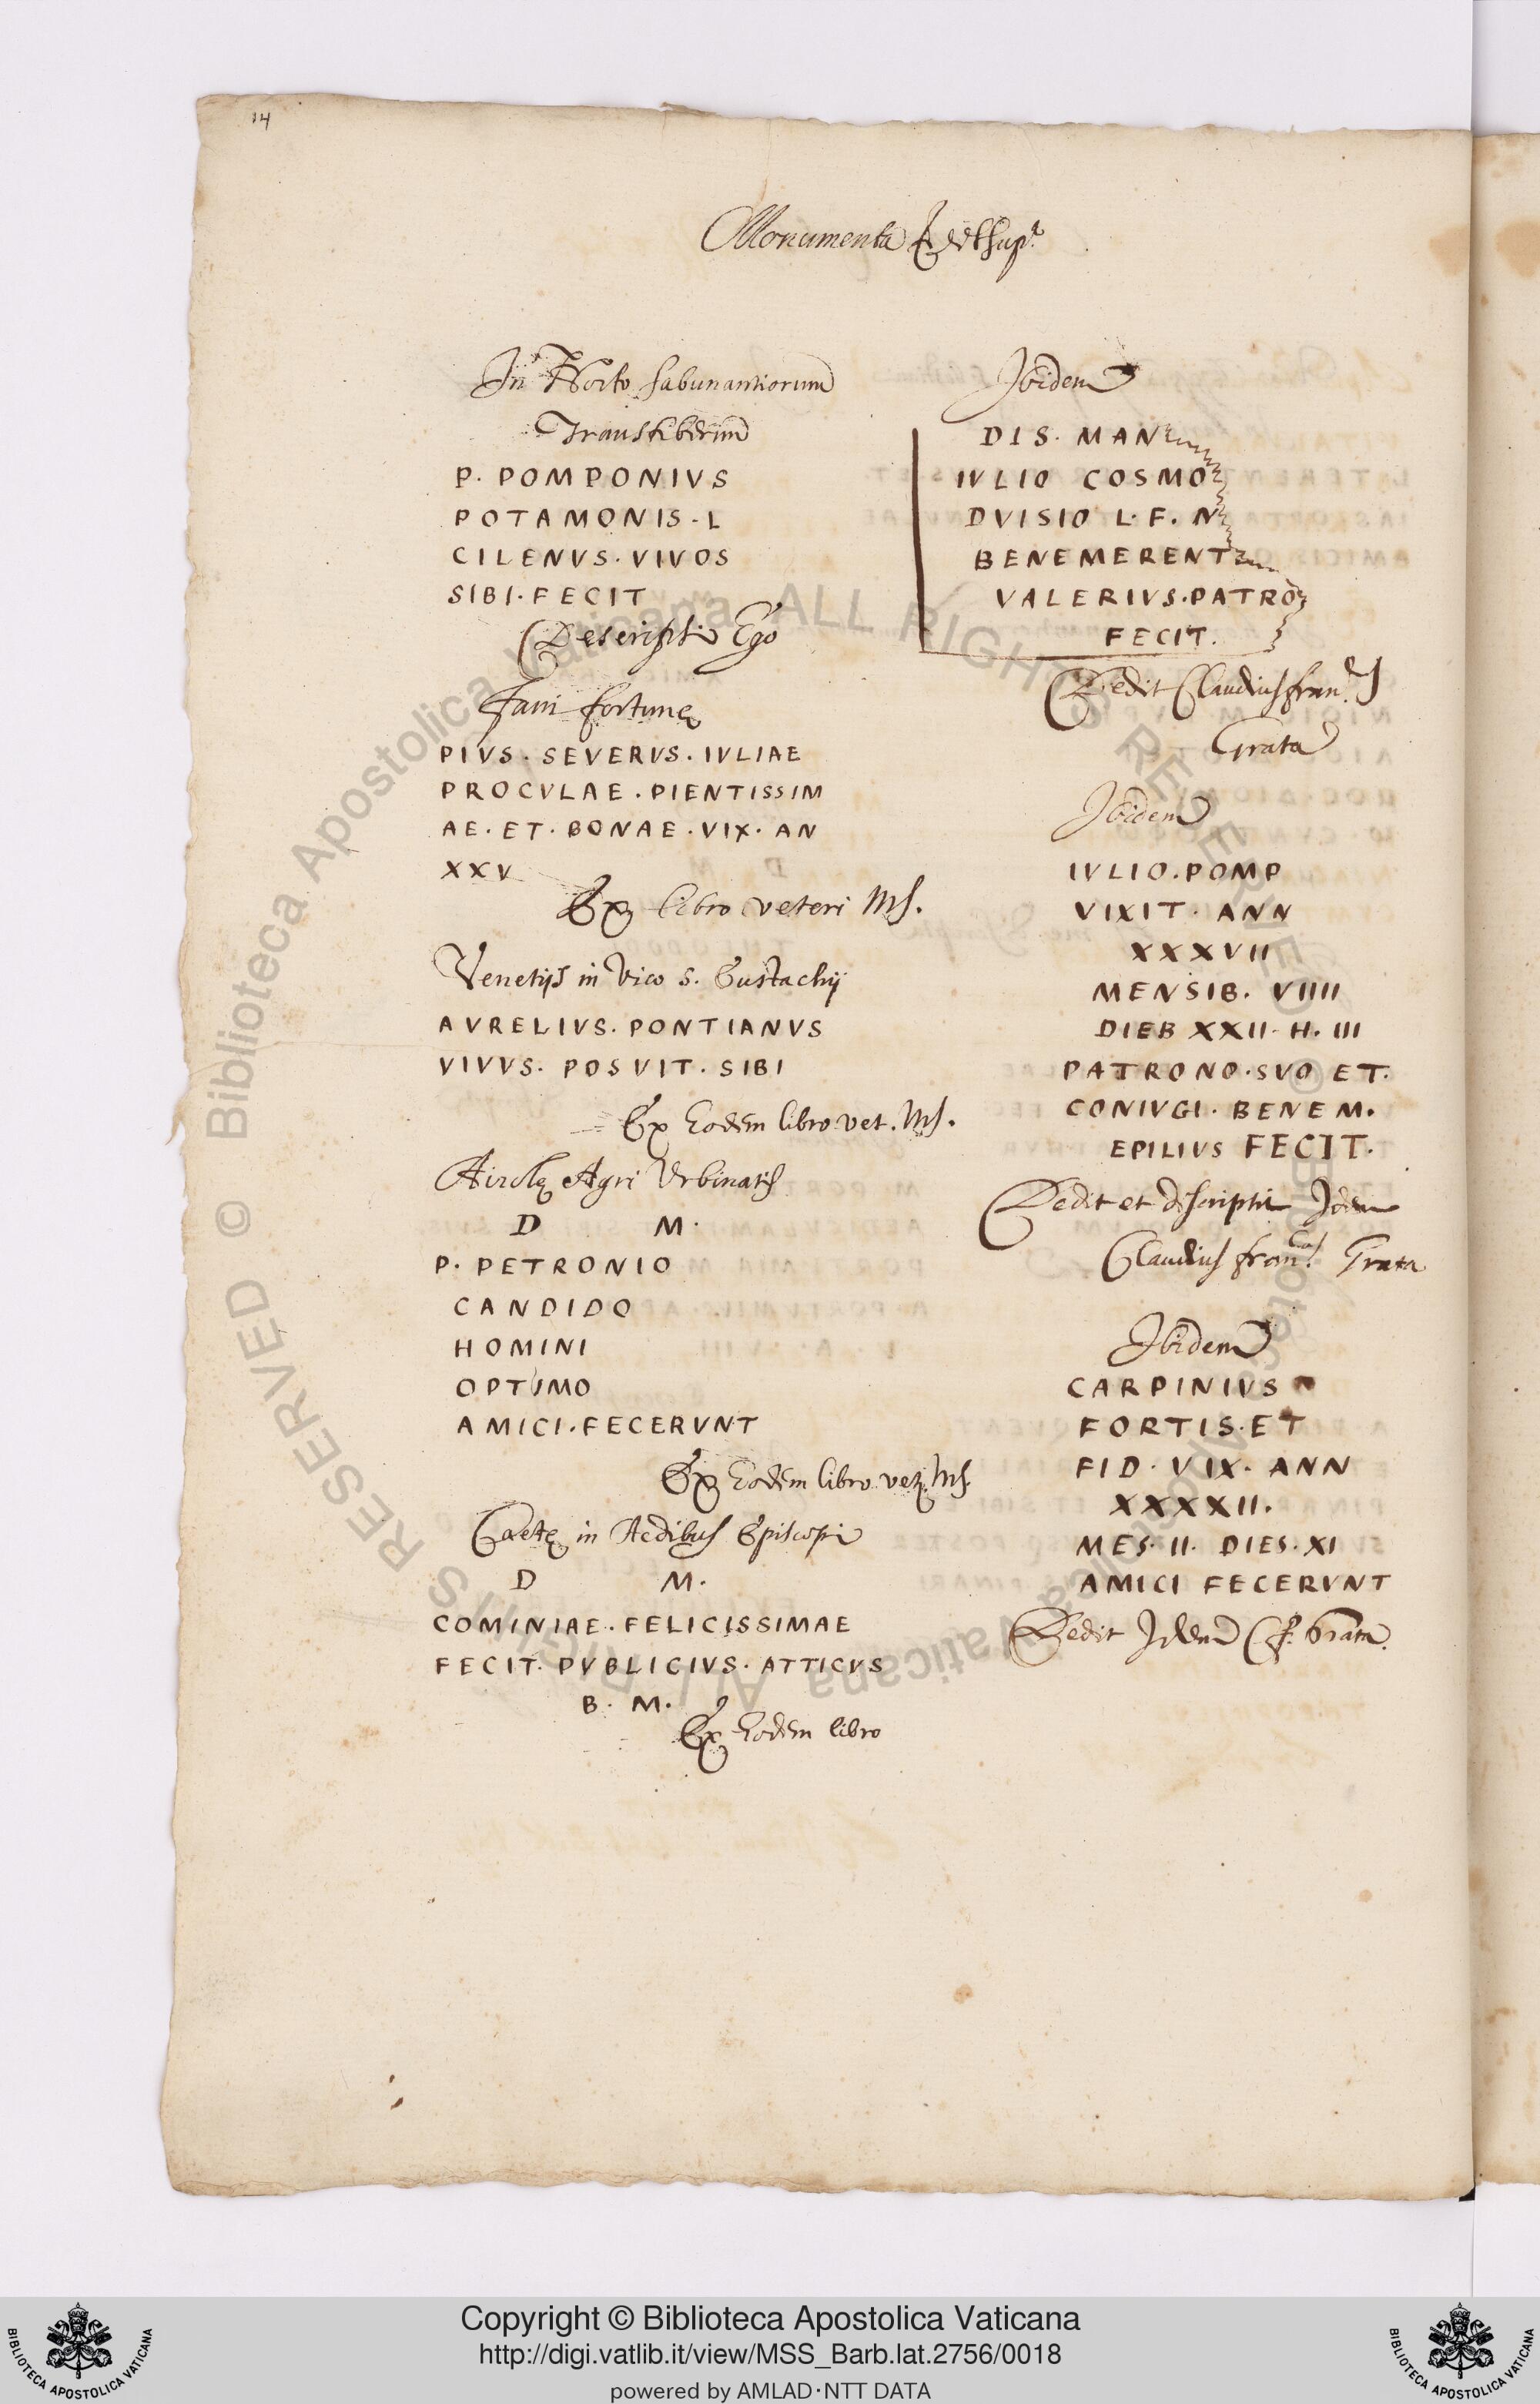 14
Monumenta
In Horto Sabunantiorum
Transtiberim
P. POMPONIVS
POTAMONIS. L
CILENVS. VIVOS
SIBI. FECIT
Descripsi Ego
Fani fortune
PIVS. SEVERVS. IVLIAE
PROCVLAE. PIENTISSIM
AE. ET. BONAE. VIX. AN
XXV
Ex libro veteri Ms.
Venetijs in Vico S. Eustachij
AVRELIVS. PONTIANVS
VIVVS. POSVIT. SIBI
Ex Eodem libro vet. Ms.
Agri Urbinatis
D M.
P. PETRONIO
CANDIDO
HOMINI
OPTIMO
AMICI. FECERVNT
Ex Eodem libro vet. Ms.
in Aedibus Episcopi
D M.
COMINIAE. FELICISSIMAE
FECIT. PVBLICIVS. ATTICVS
B. M.
Ex Eodem libro
Ibidem
DIS. MAN
IVLIO COSMO
DVISIO L. F. N
BENEMERENT
VALERIVS. PATRO
FECIT.
Dedit Claudius fran.
Grata
Ibidem
IVLIO. POMP
VIXIT. ANN
XXXVII
MENSIB. VIIII
DIEB XXII. H. III
PATRONO. SVO ET.
CONIVGI. BENE M.
EPILIVS FECIT.
Dedit et descripsit Idem
Claudius fran. Grata
Ibidem
CARPINIVS
FORTIS. ET
FID. VIX. ANN
XXXXII.
MES. II. DIES. XI
AMICI FECERVNT
Dedit Idem C. f. Grata.
Copyright © Biblioteca Apostolica Vaticana
http://digi.vatlib.it/view/MSS_Barb.lat.2756/0018
powered by AMLAD·NTT DATA
BIBLIOTECA APOSTOLICA VATICANA
BIBLIOTECA APOSTOLICA VATICANA
© Biblioteca Apostolica Vaticana ALL RIGHTS RESERVED © Biblioteca Apostolica Vaticana ALL RIGHTS RESERVED